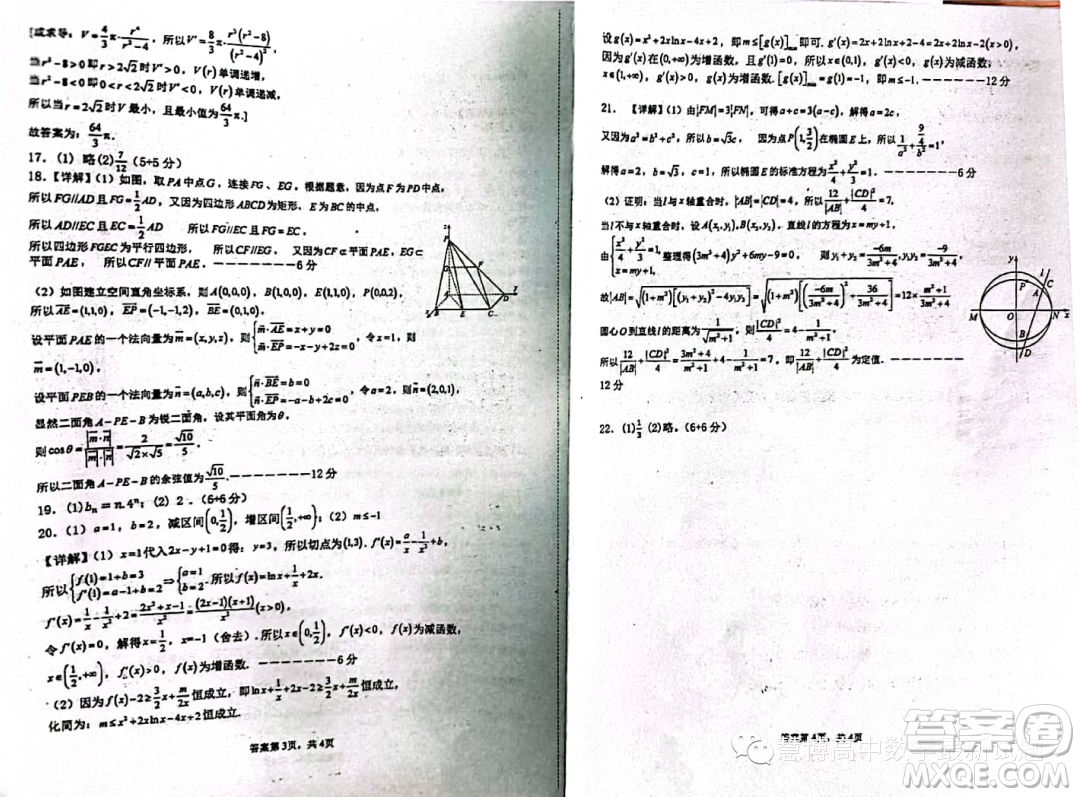 [或求导：V=4/3π·r⁴/(r²-4)，所以V'=8/3π·r³(r²-8)/(r²-4)²
当r²-8>0即r>2√2时V'>0，V(r)单调递增，
当r²-8<0即0<r<2√2时V'<0，V(r)单调递减，
所以当r=2√2时V最小，且最小值为64/3π.]
故答案为：64/3π.
17. (1) 略(2)7/12 (5+5分)
18.【详解】(1) 如图，取PA中点G，连接FG、EG，根据题意，因为点F为PD中点，
所以FG//AD且FG=1/2AD，又因为四边形ABCD为矩形，E为BC的中点，
所以AD//EC且EC=1/2AD 所以FG//EC且FG=EC，
所以四边形FGEC为平行四边形， 所以CF//EG， 又因为CF⊄平面PAE，EG⊂
平面PAE， 所以CF//平面PAE，--------6分
(2) 如图建立空间直角坐标系，则A(0,0,0)，B(1,0,0)，E(1,1,0)，P(0,0,2)，
所以AE=(1,1,0)，EP=(-1,-1,2)，BE=(0,1,0)，
设平面PAE的一个法向量为m=(x,y,z)，则{m·AE=x+y=0 m·EP=-x-y+2z=0，令x=1，则
m=(1,-1,0)，
设平面PEB的一个法向量为n=(a,b,c)，则{n·BE=b=0 n·EP=-a-b+2c=0，令a=2，则n=(2,0,1)，
显然二面角A-PE-B为锐二面角，设其平面角为θ，
则cosθ=|m·n|/|m|·|n|=2/(√2×√5)=√10/5，
所以二面角A-PE-B的余弦值为√10/5.--------12分
19. (1)bₙ=n·4ⁿ；(2) 2．(6+6分)
20. (1) a=1，b=2，减区间(0,1/2)，增区间(1/2,+∞)；(2) m≤-1
【详解】(1) x=1代入2x-y+1=0得：y=3，所以切点为(1,3). f'(x)=a/x-1/x²+b，
所以{f(1)=1+b=3 f'(1)=a-1+b=2⇒{a=1 b=2．所以f(x)=lnx+1/x+2x，
f'(x)=1/x-1/x²+2=(2x²+x-1)/x²=(2x-1)(x+1)/x²(x>0)，
令f'(x)=0，解得x=1/2，x=-1(舍去).所以x∈(0,1/2)，f'(x)<0，f(x)为减函数，
x∈(1/2,+∞)，f'(x)>0，f(x)为增函数.--------6分
(2) 因为f(x)-2≥3/2x+m/2x恒成立，即lnx+1/x+2x-2≥3/2x+m/2x恒成立，
化简为：m≤x²+2xlnx-4x+2恒成立.
答案第3页，共4页
设g(x)=x²+2xlnx-4x+2，即m≤[g(x)]min即可. g'(x)=2x+2lnx+2-4=2x+2lnx-2(x>0)，
因为g'(x)在(0,+∞)为增函数，且g'(1)=0，所以x∈(0,1)，g'(x)<0，g(x)为减函数，
x∈(1,+∞)，g'(x)>0，g(x)为增函数.[g(x)]min=g(1)=-1，即m≤-1.------12分
21. 【详解】(1) 由|FM|=3|FN|，可得a+c=3(a-c)，解得a=2c，
又因为a²=b²+c²，所以b=√3c， 因为点P(1,3/2)在椭圆E上，所以1/a²+(9/4)/b²=1，
解得a=2，b=√3，所以椭圆E的标准方程为x²/4+y²/3=1.--------6分
(2) 证明，当l与x轴重合时，|AB|=|CD|=4，所以12/|AB|+|CD|²/4=7，
当l不与x轴重合时，设A(x₁,y₁),B(x₂,y₂)，直线l的方程为x=my+1，
由{x²/4+y²/3=1, x=my+1,整理得(3m²+4)y²+6my-9=0， 则y₁+y₂=-6m/(3m²+4)，y₁y₂=-9/(3m²+4)，
故|AB|=√((1+m²)[(y₁+y₂)²-4y₁y₂])=√((1+m²)[(-6m/(3m²+4))²+36/(3m²+4)])=12×(m²+1)/(3m²+4)，
圆心O到直线l的距离为1/√(m²+1)，则|CD|²/4=4-1/(m²+1)，
所以12/|AB|+|CD|²/4=(3m²+4)/(m²+1)+4-1/(m²+1)=7，即12/|AB|+|CD|²/4为定值.--------
12分
22. (1)1/3 (2)略，(6+6分)
答案第4页，共4页
慧博高中数学
答案圈
MXQE.COM